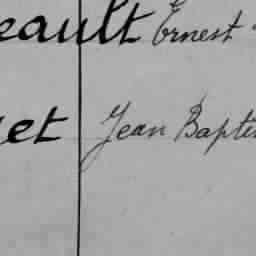 eault Ernest
et Jean Baptis